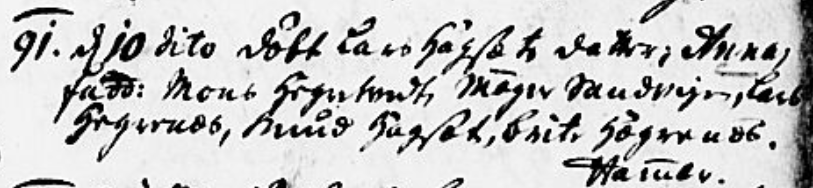 91. d 10 dito döbt Lars Högset datter, Anna,
fadd: Mons Hegretvedt, Mager Sandvigen, Lars
Hegrenæs, Knud Högset, Brite Högrenæs.
Hammer.